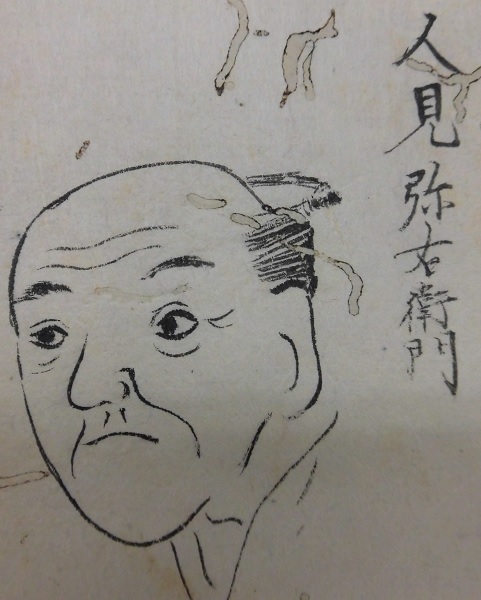 人見弥右衛門